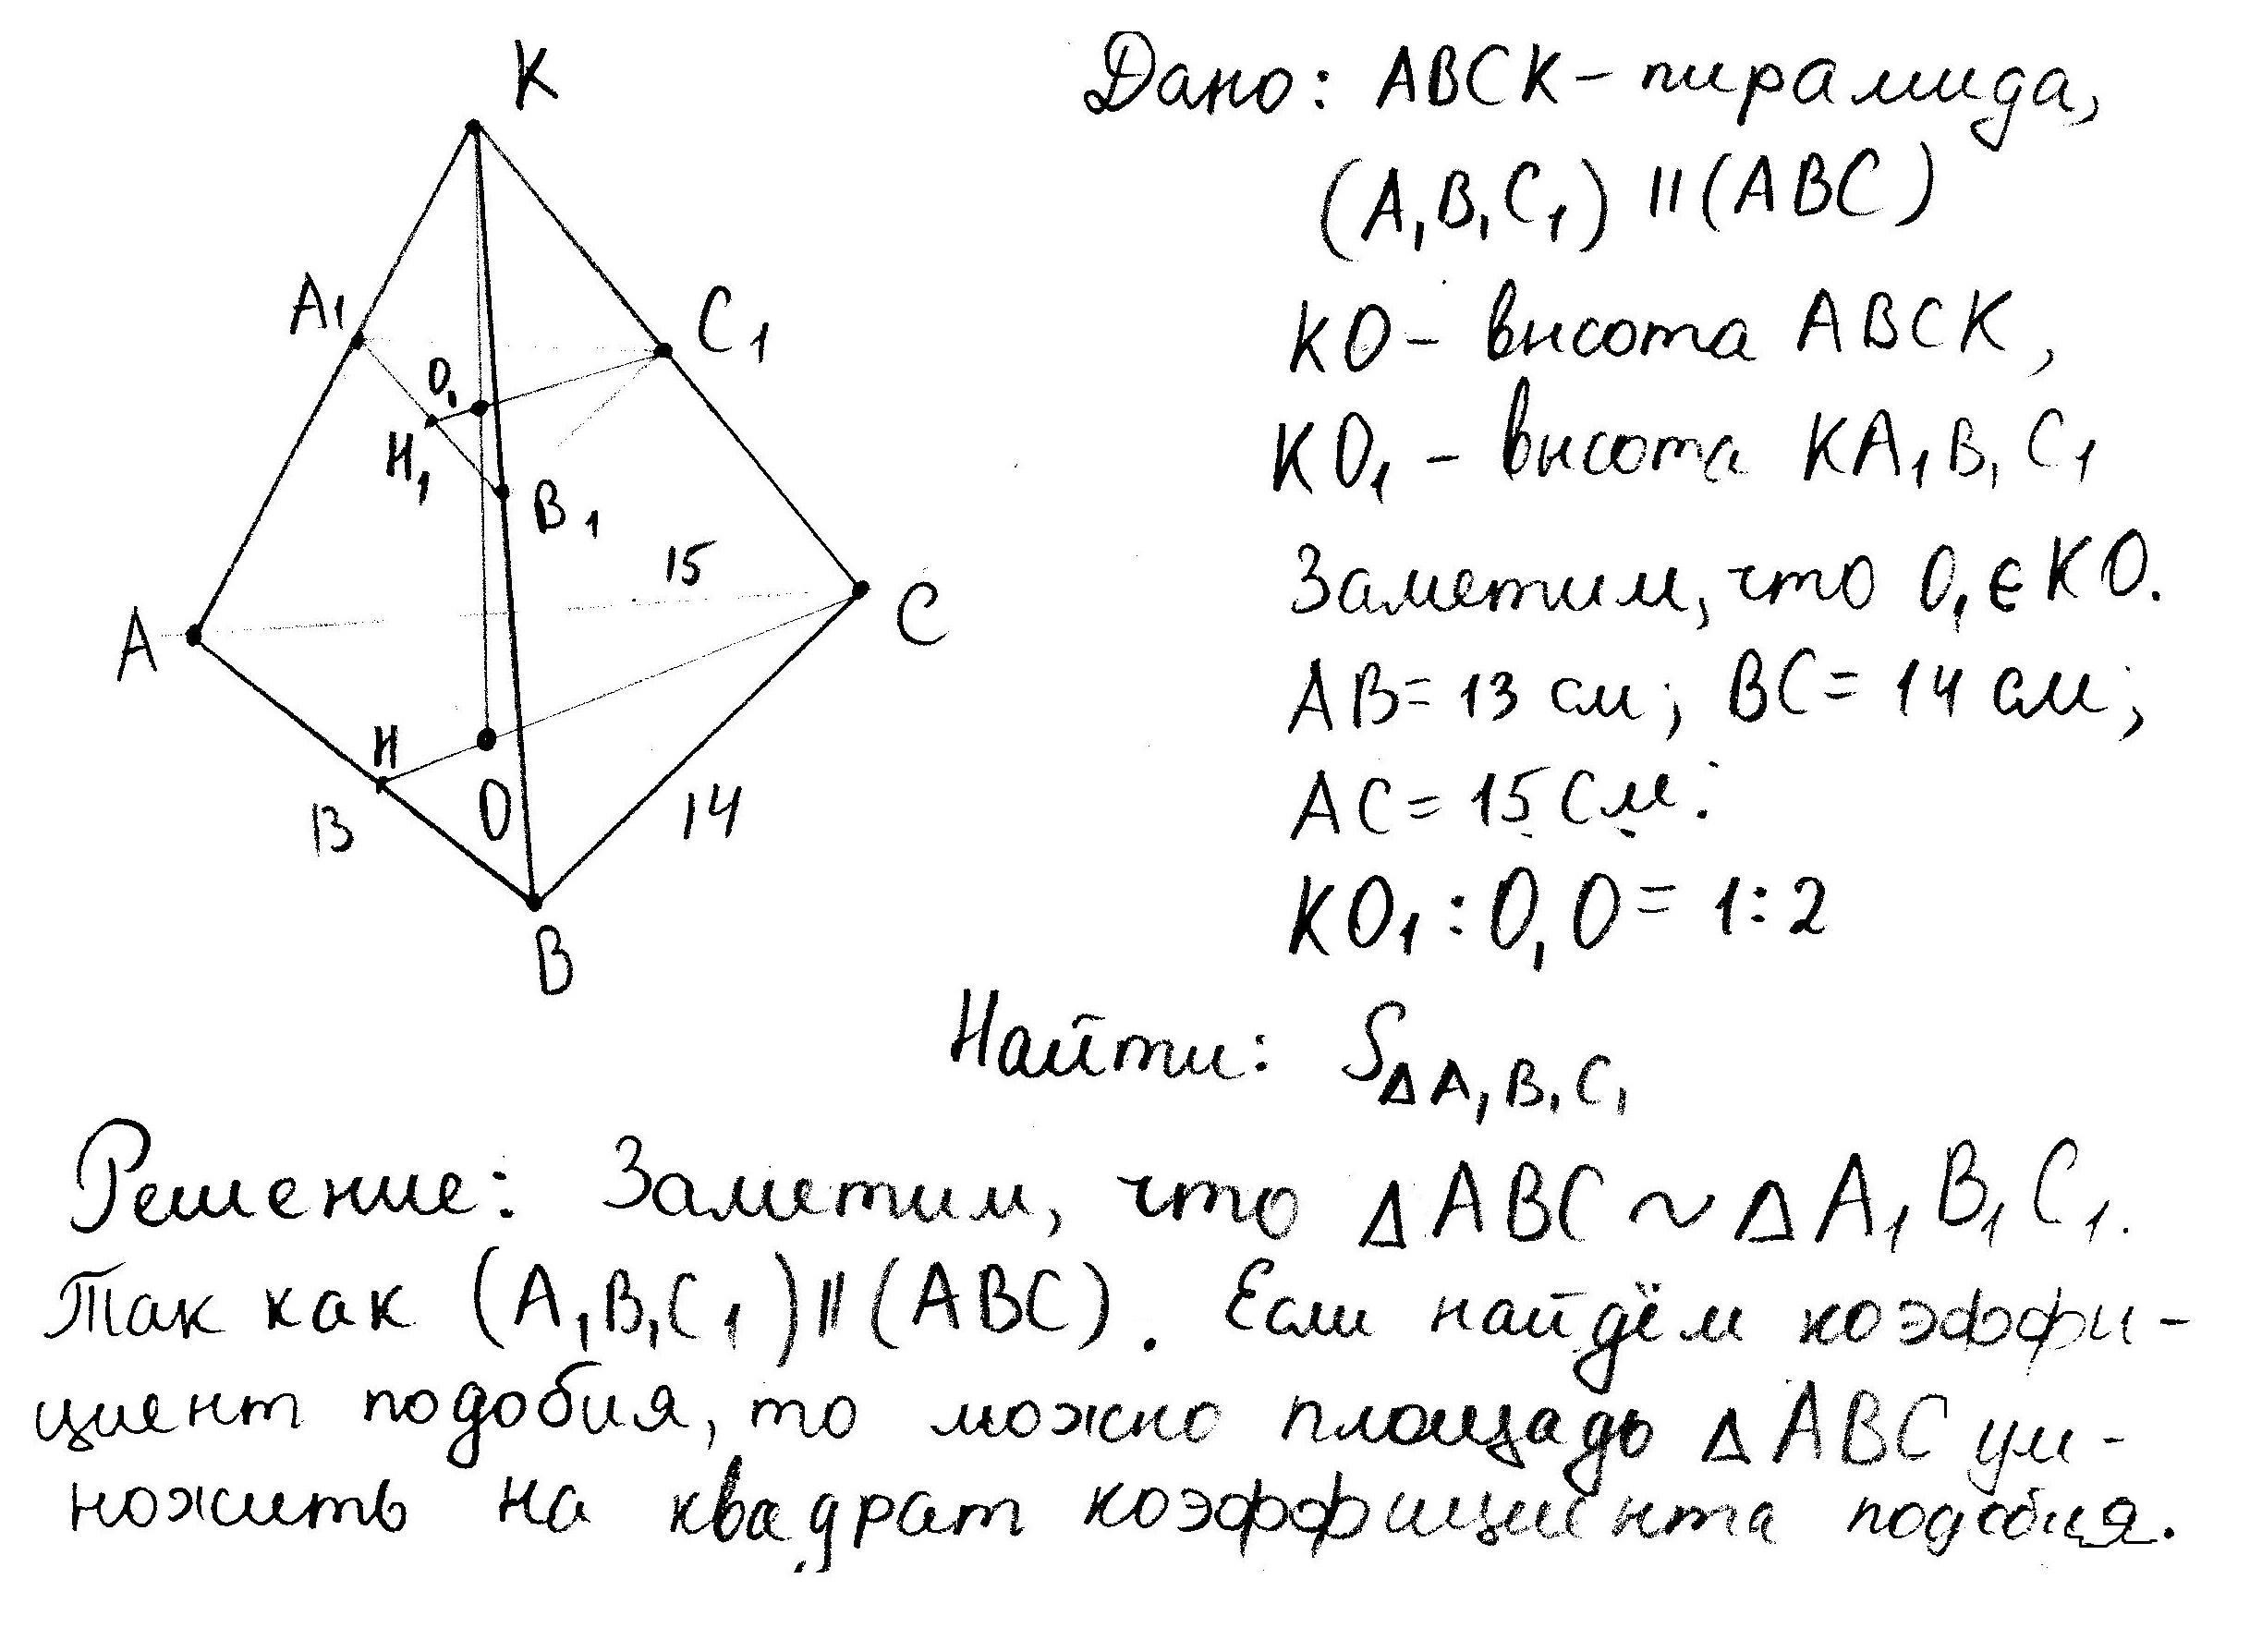 K
Дано: ABCK – пирамида,
(A₁B₁C₁) || (ABC)
KO – высота ABCK,
KO₁ – высота KA₁B₁C₁
Заметим, что O₁ ∈ KO.
AB = 13 см; BC = 14 см;
AC = 15 см.
KO₁ : O₁O = 1:2
A₁
C₁
O₁
H₁
B₁
15
A
C
H
B
O
14
B
Найти: S△A₁B₁C₁
Решение: Заметим, что △ABC ~ △A₁B₁C₁.
Так как (A₁B₁C₁) || (ABC). Если найдём коэффи-
циент подобия, то можно площадь △ABC ум-
ножить на квадрат коэффициента подобия.